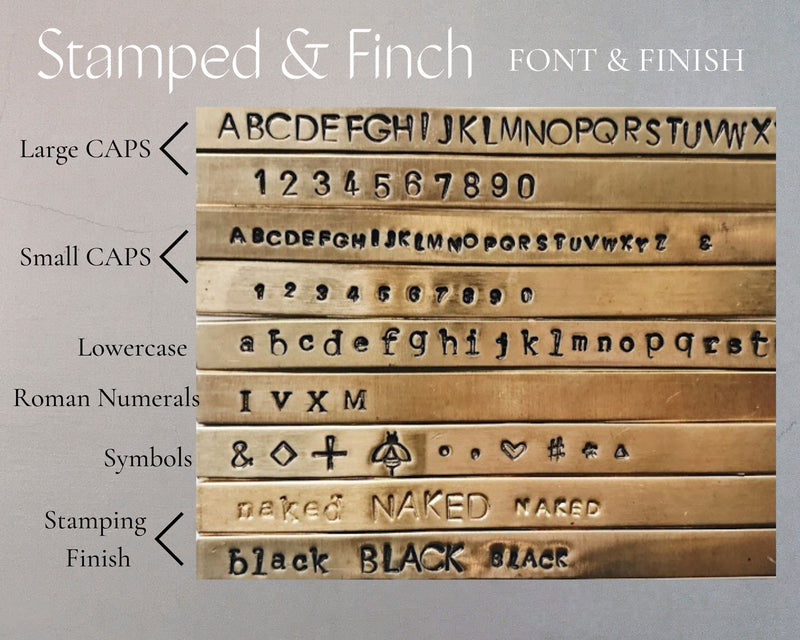 Stamped & Finch FONT & FINISH
Large CAPS
ABCDEFGHIJKLMNOPQRSTUVWX
1 2 3 4 5 6 7 8 9 0
Small CAPS
ABCDEFGHIJKLMNOPQRSTUVWXYZ &
1 2 3 4 5 6 7 8 9 0
Lowercase
a b c d e f g h i j k l m n o p q r s t
Roman Numerals
I V X M
Symbols
& #
Stamping
Finish
naked NAKED NAKED
black BLACK BLACK